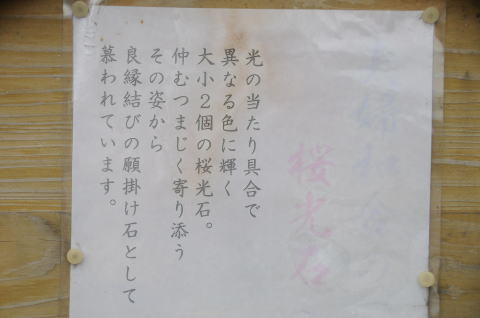 桜光石
光の当たり具合で
異なる色に輝く
大小２個の桜光石。
仲むつまじく寄り添う
その姿から
良縁結びの願掛け石として
慕われています。